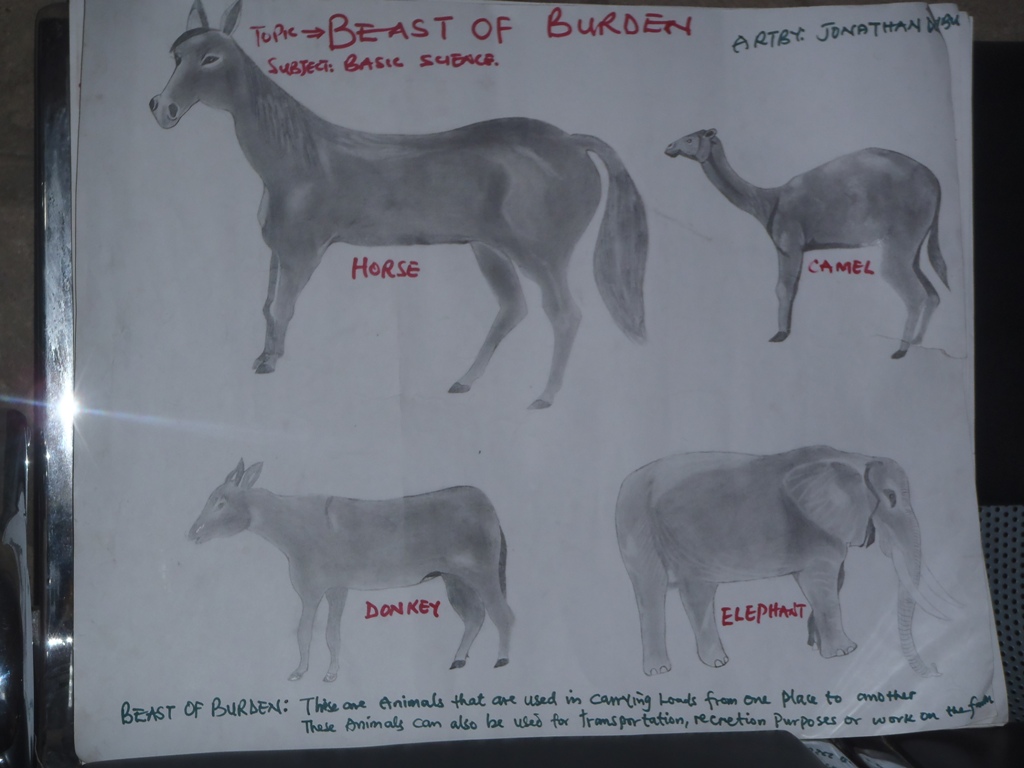 TOPIC → BEAST OF BURDEN
SUBJECT: BASIC SCIENCE.
ART BY: JONATHAN
HORSE
CAMEL
DONKEY
ELEPHANT
BEAST OF BURDEN: These are Animals that are used in carrying Loads from one Place to another
These Animals can also be used for transportation, recretion Purposes or work on the farm